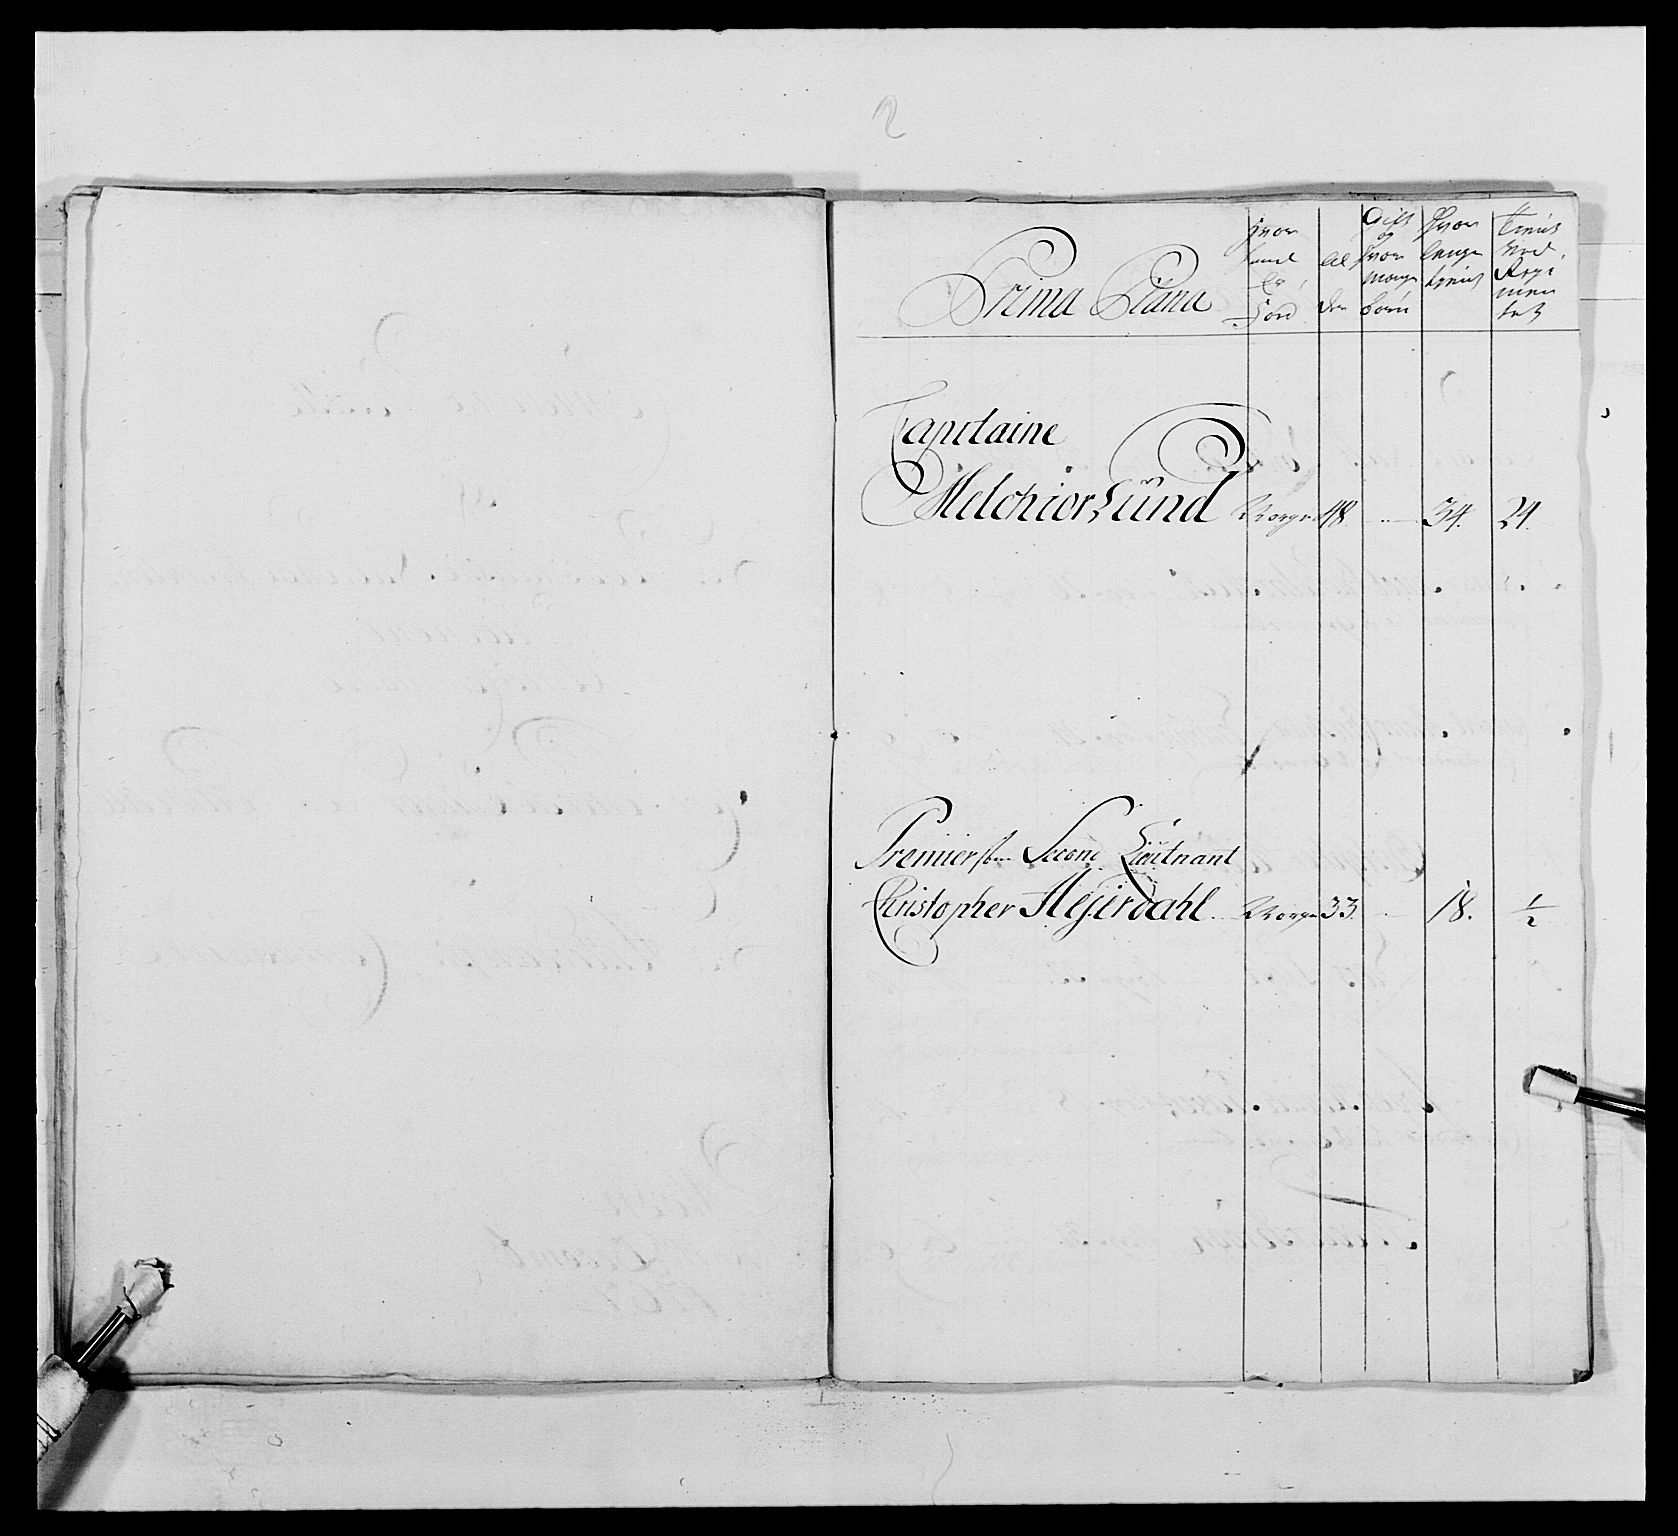 2
Prima Plana
hvor hand er Föd
al der
Gift og hvor mange börn
hvor lenge tient
tient ved Regimentet
Capitaine
Melchior Lünd Norge 48 34. 24.
Premier Second Lieütnant
Christopher Mejerdahl Norge 33 18. 1/2